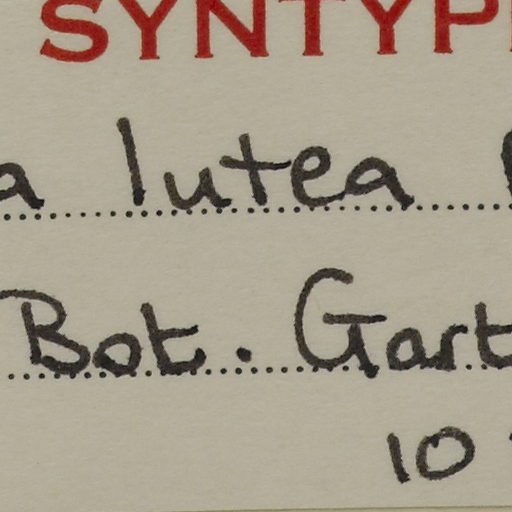 SYNTYP
a lutea
Bot. Gart
10